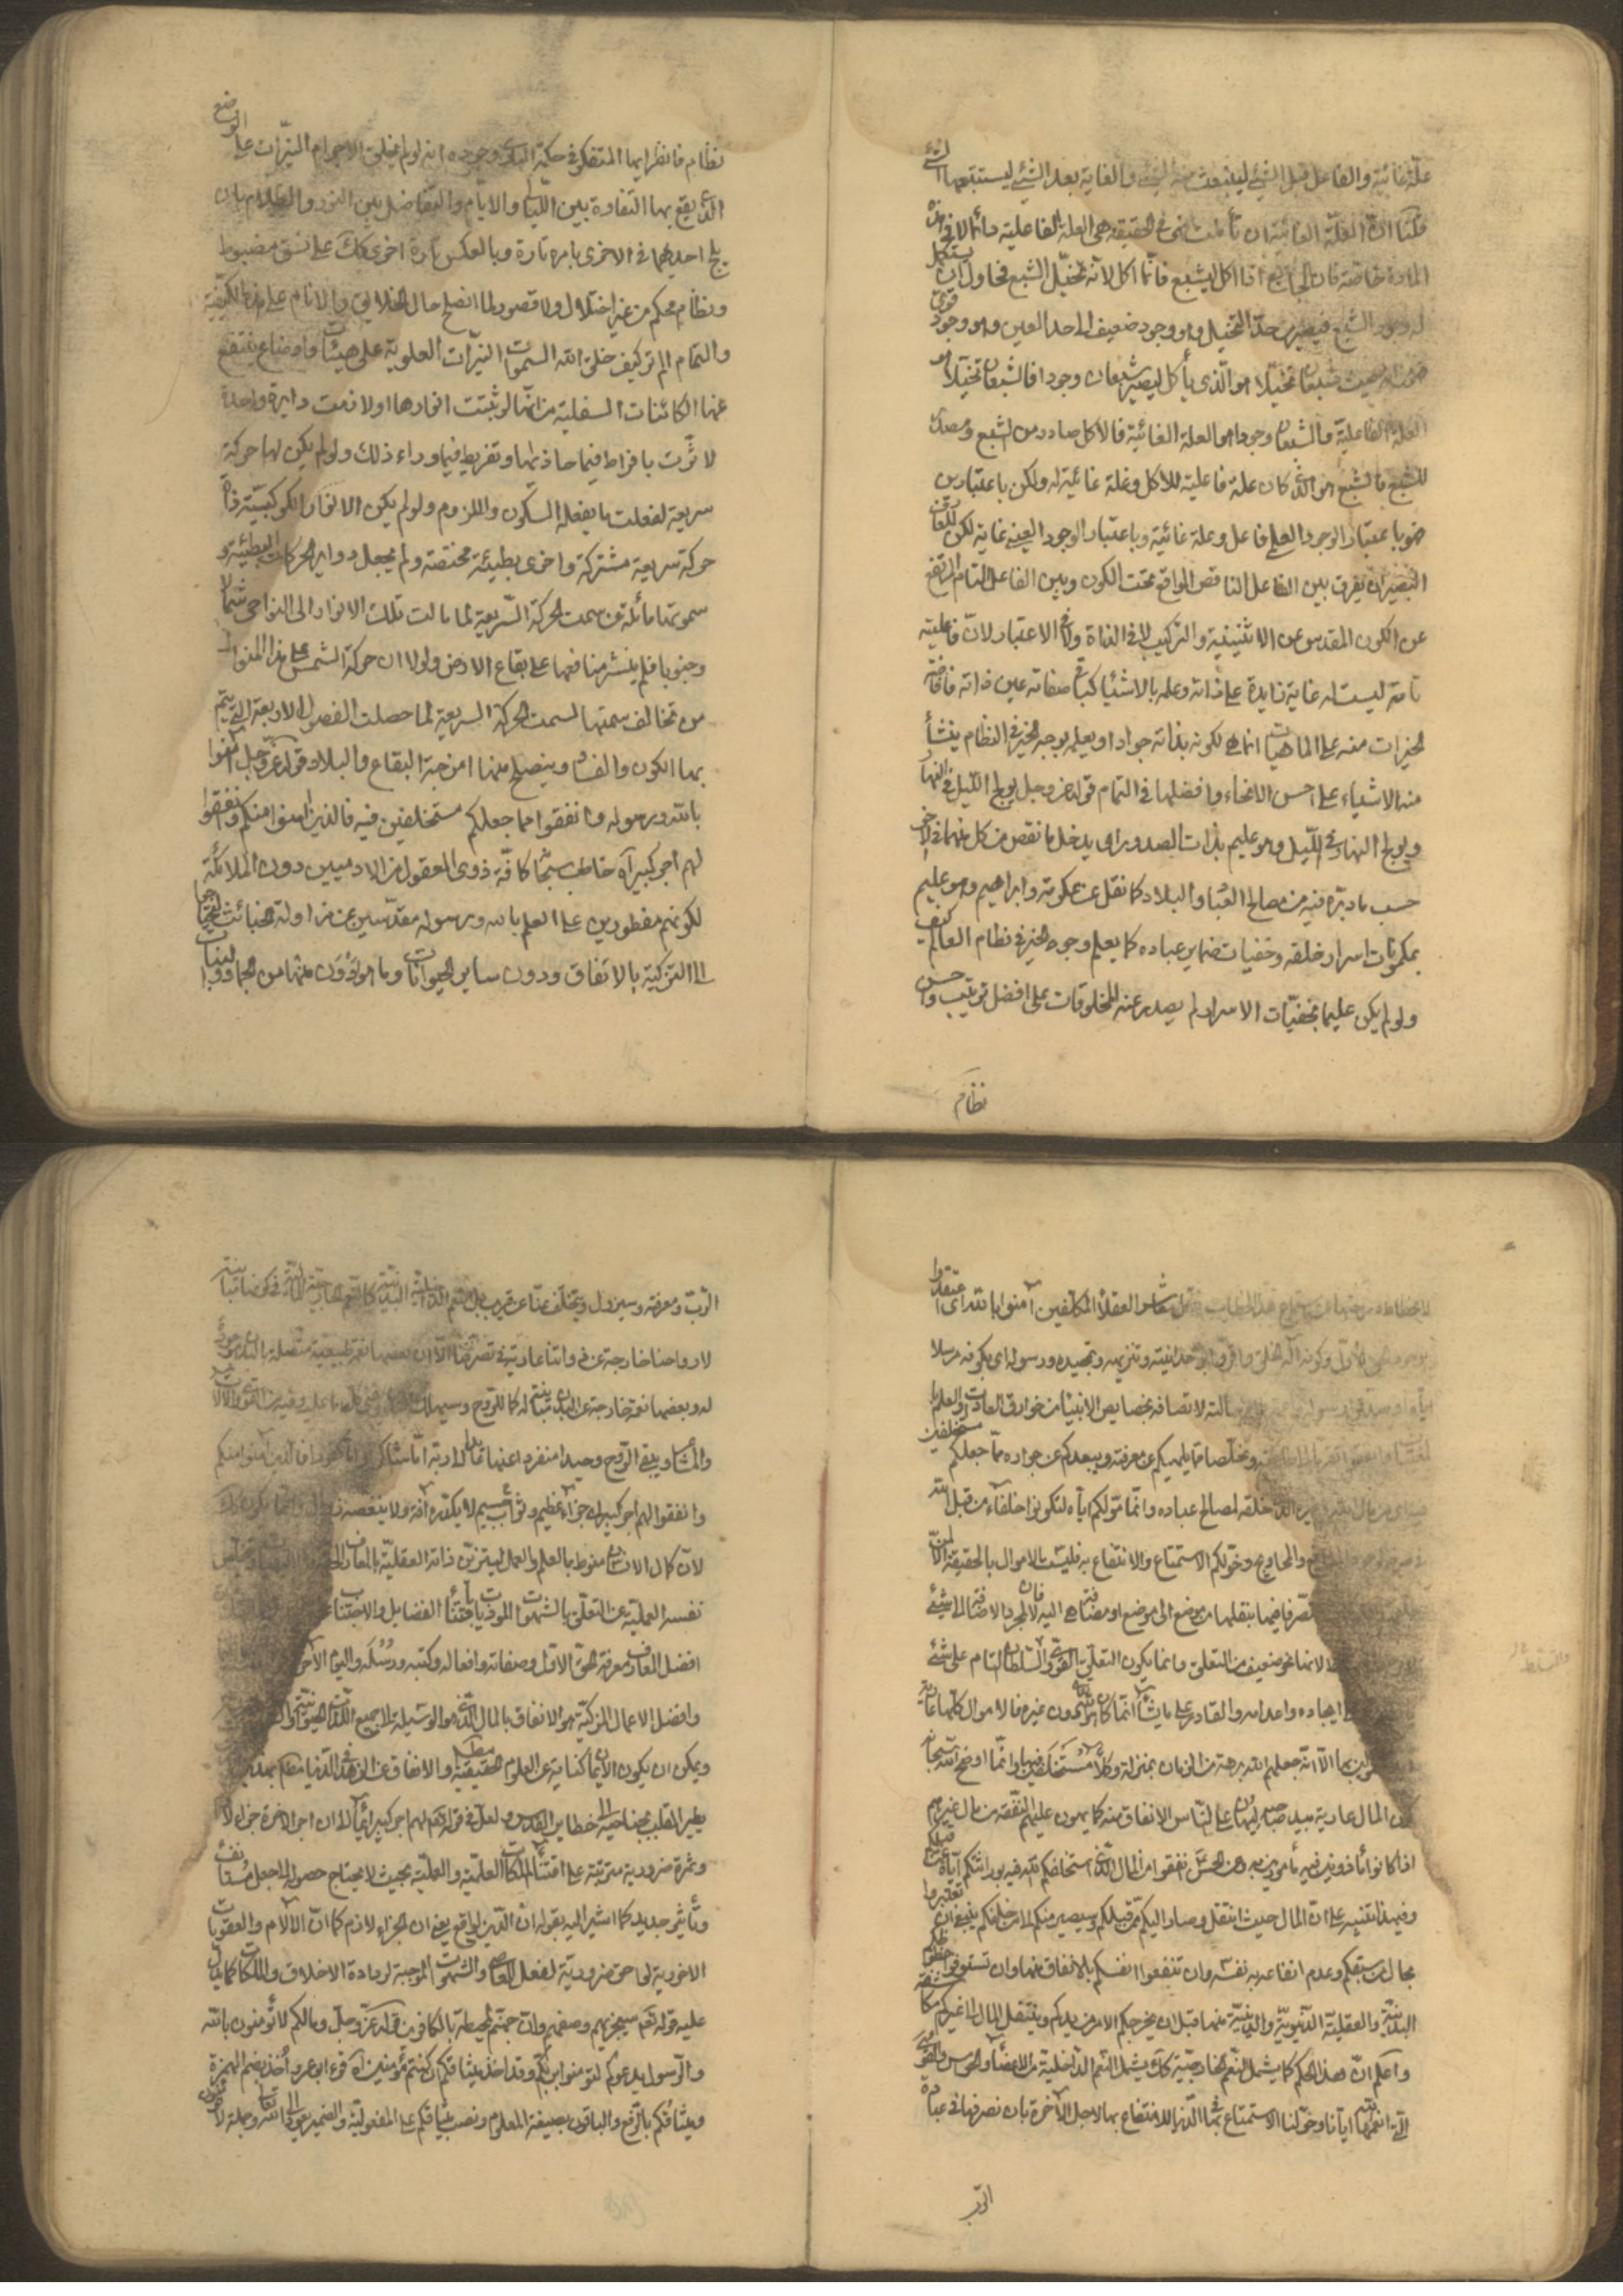 علة غائية والفاعل قبل الشئ لينبعث منه الشئ والغاية بعد الشئ ليستتبعها الشئ
قلنا ان العلة الغائية ان تأملت فهى فى الحقيقة هى العلة الفاعلية دائما لا فى هذه
المادة خاصة فان الجايع اذا اكل ليشبع فانما اكل لانه تخيل الشبع فحاول ان يستكمل
له وجود الشبع فيصير من حد التخيل وهو وجود ضعيف الى حد العين وهو وجود قوى
شبعان تخيلا هو الذى يأكل ليصير شبعان وجودا فالشبعان تخيلا هو
العلة الفاعلية والشبعان وجودا هو العلة الغائية فالاكل صادر من الشبع ومصدر
للشبع فالشبع هو الذى كان علة فاعلية للاكل وعلة غائية له ولكن باعتبارين
فهو باعتبار الوجود العلمى فاعل وعلة غائية وباعتبار الوجود العينى غاية لكن للعارف
البصير ان يفرق بين الفاعل الناقص الواقع تحت الكون وبين الفاعل التام المرتفع
عن الكون المقدس عن الاثنينية والتركيب لا فى الذات ولا فى الاعتبار لان فاعليته
تامة ليست له غاية زايدة على ذاته وعلمه بالاشياء كباقى صفاته عين ذاته فافاضة
الخيرات منه على الماهيات انما هى لكونه بذاته جوادا ويعلم بوجه الخير فى النظام ينشأ
منه الاشياء على احسن الانحاء وافضلها فى التمام قوله عز وجل يولج الليل فى النهار
ويولج النهار فى الليل وهو عليم بذات الصدور اى يدخل ما نقص من كل منهما فى الاخر
حسب ما دبره فيه من مصالح العباد والبلاد كما نقل عن عكرمة وابراهيم وهو عليم
بمكنونات اسرار خلقه وخفيات ضماير عباده كما يعلم وجوه الخير فى نظام العالم كيف
ولو لم يكن عليما بخفيات الاسرار لم يصدر عنه المخلوقات على افضل ترتيب واحسن
نظام
نظام فانظر ايها المتفكر فى حكمة البارى وجوده انه لو لم يخلق الاجرام النيرات على الوضع
الذى يقع بها التفاوت بين الليالى والايام والتفاضل بين النور والظلام بان
يلج احديهما فى الاخرى بامره تارة وبالعكس تارة اخرى كل ذلك على نسق مضبوط
ونظام محكم من غير اختلال ولا قصور لما انصلح حال الخلايق والانام على هذه الكيفية
والتمام الم تر كيف خلق الله السموات النيرات العلوية على هيئات واوضاع ينتفع
عنها الكائنات السفلية من انها لو ثبتت انوارها او لازمت دايرة واحدة
لاثرت بافراط فيما حاذيها وتفريط فيما وراء ذلك ولو لم يكن لها حركة
سريعة لفعلت ما يفعله السكون واللزوم ولو لم يكن الانوار الكوكبية ذات
حركة سريعة مشتركة واخرى بطيئة مختصة ولم يجعل دواير الحركات البطيئة و
سموتها مائلة عن سمت الحركة السريعة لما مالت تلك الانوار الى النواحى شمالا
وجنوبا فلم ينشر منافعها على بقاع الارض ولولا ان حركة الشمس على هذا المنوال
من تخالف سمتها لسمت الحركة السريعة لما حصلت الفصول الاربعة التى يتم
بها الكون والفساد وينصلح منها امزجة البقاع والبلاد قوله عز وجل آمنوا
بالله ورسوله وانفقوا مما جعلكم مستخلفين فيه فالذين امنوا منكم وانفقوا
لهم اجر كبير آه خاطب سبحانه كافة ذوى العقول من الادميين دون الملائكة
لكونهم مفطورين على العلم بالله ورسوله مقدسين عن مزاولة الخبائث
الى التزكية بالاتفاق ودون ساير الحيوانات وما هو ادون منها من الجماد والنبات
العقلاء المكلفين آمنوا بالله اى اعتقدوا
وكونه اله الخلق واقروا بوحدانيته وتنزيهه وتمجيده ورسوله اى بكونه مرسلا
لاتصافه بخصايص الانبياء من خوارق العادات والعلم
وتخلصا عما يلهيكم عن معرفته ويبعدكم عن جواره مما جعلكم مستخلفين
الذى خلقه لمصالح عباده وانما مولكم اياه لتكونوا خلفاء من قبل الله
والمحاويج وخولكم الاستمتاع والانتفاع به فليست الاموال بالحقيقة
فيها بنقلها من موضع الى موضع او مضافا اليه فان مجرد الاضافة الى شئ
نحو ضعيف من التعلق وانما يكون التعلق القوى والسلطان التام على شئ
ايجاده واعدامه والقادر على ما يشاء انما كان هو الله دون غيره فالاموال كلها عارية
الا انه جعلهم الله برهة من الزمان بمنزلة وكلاء مستخلفين فيها وانما اوضح الله سبحانه
كون المال عارية بيد صاحبه ليهون على الناس الانفاق منه كما يهون عليهم النفقة من مال غيرهم
اذا كانوا مأذونين فيه مأمورين به وعن الحسن انفقوا من المال الذى استخلفكم الله فيه بوراثتكم اياه عمن قبلكم
وفيه ايضا تنبيه على ان المال حيث انتقل وصار اليكم ممن قبلكم وسيصير منكم الى من خلفكم ينبغى ان تعتبروا
بحال من سبقكم وعدم انتفاعه به نفسه وان تنفعوا انفسكم بالانفاق منها وان تستوفوا حظوظكم
البدنية والعقلية الدنيوية والدينية منها قبل ان يخرجكم الامر من يدكم وينتقل المال الى غيركم
واعلم ان هذا الحكم كما يشمل النعم الخارجية كذلك يشمل النعم الداخلية من الاعضاء والحواس والقوى
التى انعمها ايانا وخولنا الاستمتاع بها فى الدنيا للانتفاع بها لاجل الآخرة بان نصرفها فى عبادة
الرب
الرب ومعرفته وسيزول ويتخلف عنا عن قريب بل النعم الداخلية البدنية كالنعم الخارجية المالية فى كونها مباينة
لارواحنا خارجة عن ذواتنا عارية فى تصرفنا الا ان بعضها نعم طبيعية متصلة بالبدن
له وبعضها نعم خارجة عن البدن مباينة له كالزوج
والمشاعر ويبقى الروح وحيدا منفردا عنها
وانفقوا لهم اجر كبير اى جزاء عظيم وثواب جسيم لا يكدره آفة ولا ينغصه زوال
لان كمال الانسان منوط بالعلم والعمل ليتزين ذاته العقلية بالمعارف
نفسه العملية عن التعلق بالشهوات الموذيات باقتناء الفضايل والاجتناب
افضل المعارف معرفة الحق الاول وصفاته وافعاله وكتبه ورسله واليوم الآخر
وافضل الاعمال المزكية هو الانفاق بالمال الذى هو الوسيلة الى جميع اللذات الحيوانية
ويمكن ان يكون الايمان كناية عن العلوم الحقيقية مطلقا والانفاق عن الزهد فى الدنيا
يطير القلب بجناحيه الى حظاير القدس ولعل فى قوله تعالى لهم اجر كبير ايماء الى ان اجر الاخرة جزاء لازم
وثمرة ضرورية مترتبة على اقتناء الملكات العلمية والعملية بحيث لا يحتاج حصوله الى جعل مستأنف
وتأثير جديد كما اشير اليه بقوله ان الدين لواقع يعنى ان الجزاء لازم كما ان الآلام والعقوبات
الاخروية لواحق ضرورية لفعل المعاصى والشهوات الموجبة لرداءة الاخلاق والملكات كما يدل
عليه قوله تعالى سيجزيهم وصفهم وان جهنم لمحيطة بالكافرين قوله عز وجل ومالكم لا تؤمنون بالله
والرسول يدعوكم لتؤمنوا بربكم وقد اخذ ميثاقكم ان كنتم مؤمنين آه قرء ابو عمرو أخذ بضم الهمزة
وميثاقكم بالرفع والباقون بصيغة المعلوم ونصب ميثاقكم على المفعولية والضمير يعود الى الله تعالى وجملة لا تؤمنون